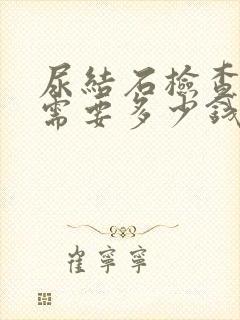 尿結石檢查
需要多少錢
崔寧寧